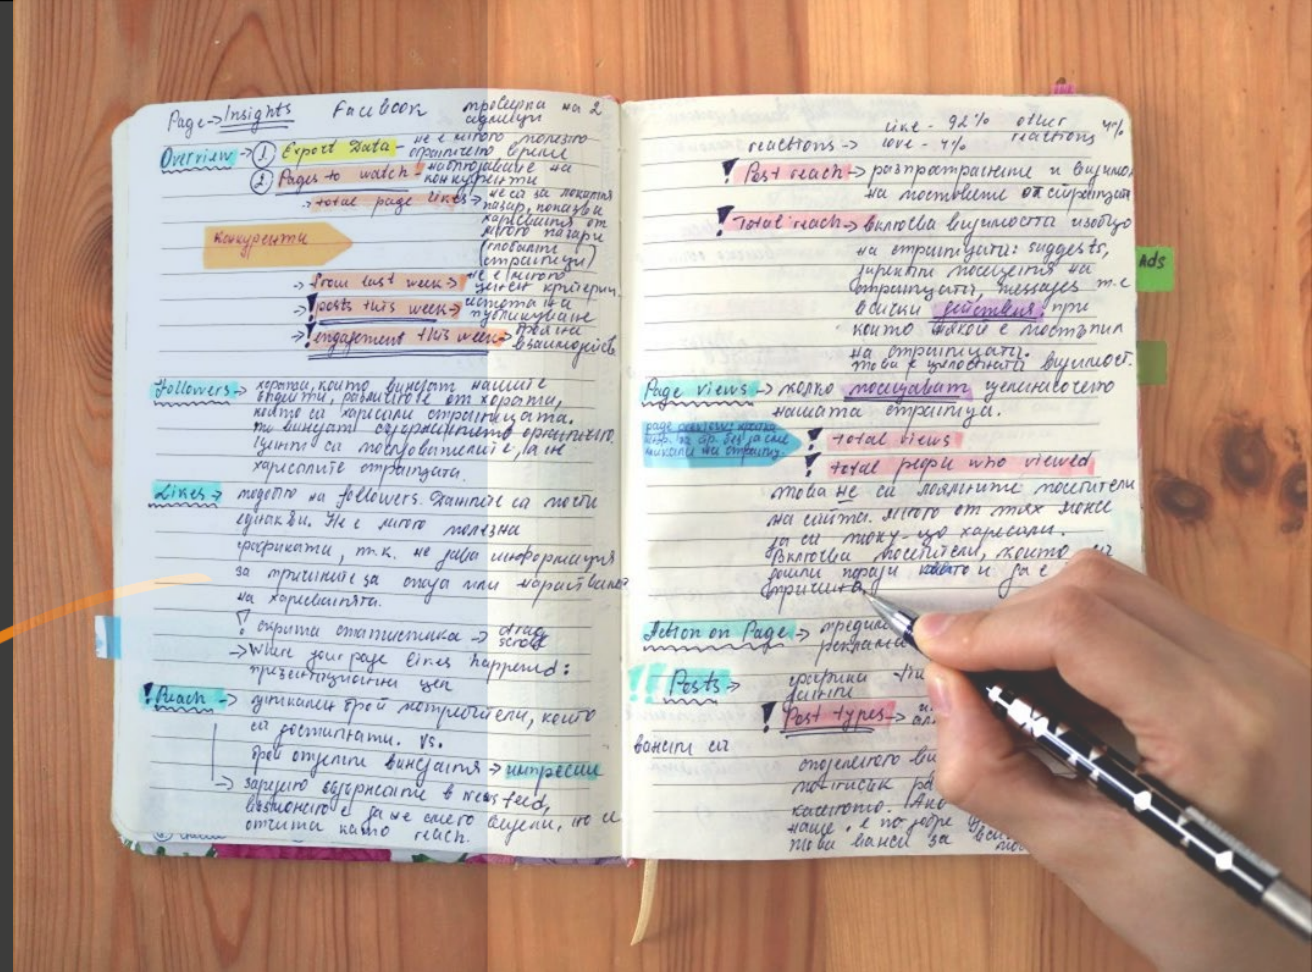 Page → Insights Facebook проверка на 2
седмици
Overview → 1 Export Data - не е много полезно
ограничено време
2 Pages to watch - наблюдаване на
конкуренти
→ total page likes → не са за локалния
пазар, показва
харесвания от
много пазари
(глобални
страници)
конкуренти
→ from last week → не е много
ценен критерий
→ ! posts this week → честота на
публикуване
→ ! engagement this week →
взаимодейств
Followers → хората, които виждат нашите
ъпдейти, различно е от хората,
които са харесали страницата.
Те виждат съдържанието органично.
Ценни са последователите, а не
харесалите страницата.
Likes → подобно на followers. Данните са почти
еднакви. Не е много полезна
графиката, т.к. не дава информация
за причините за спада или нарастването
на харесванията.
! скрита статистика → drag
scroll
→ Where your page likes happened:
презентационна цел
! Reach → уникален брой потребители, които
са достигнати. vs.
брой отделни виждания → импресии
→ заредено съдържание в news feed,
възможно е да не сме го видели, но се
отчита като reach.
like - 92% other
reactions → love - 4% reactions 4%
! Post reach → разпространение и видимо
на постовете от страницата
! Total reach → включва видимостта изобщо
на страницата: suggests,
директни посещения на
страницата, messages т.е
всички действия, при
които някой е постъпил
на страницата.
Това е цялостната видимост.
Ads
Page views → колко посещават целенасочено
нашата страница.
page previews кратка
инф. за стр. без да сме
кликали на страниц.
! total views
! total people who viewed
това не са лоялните посетители
на сайта. Много от тях може
да са току-що харесали.
Включва посетители, които са
дошли поради каквато и да е
причина.
Action on Page →
реклама
!! Posts → графика
данни
! Post types →
важни са
споделеното
каченото.
наше, е по-добре
това важи за